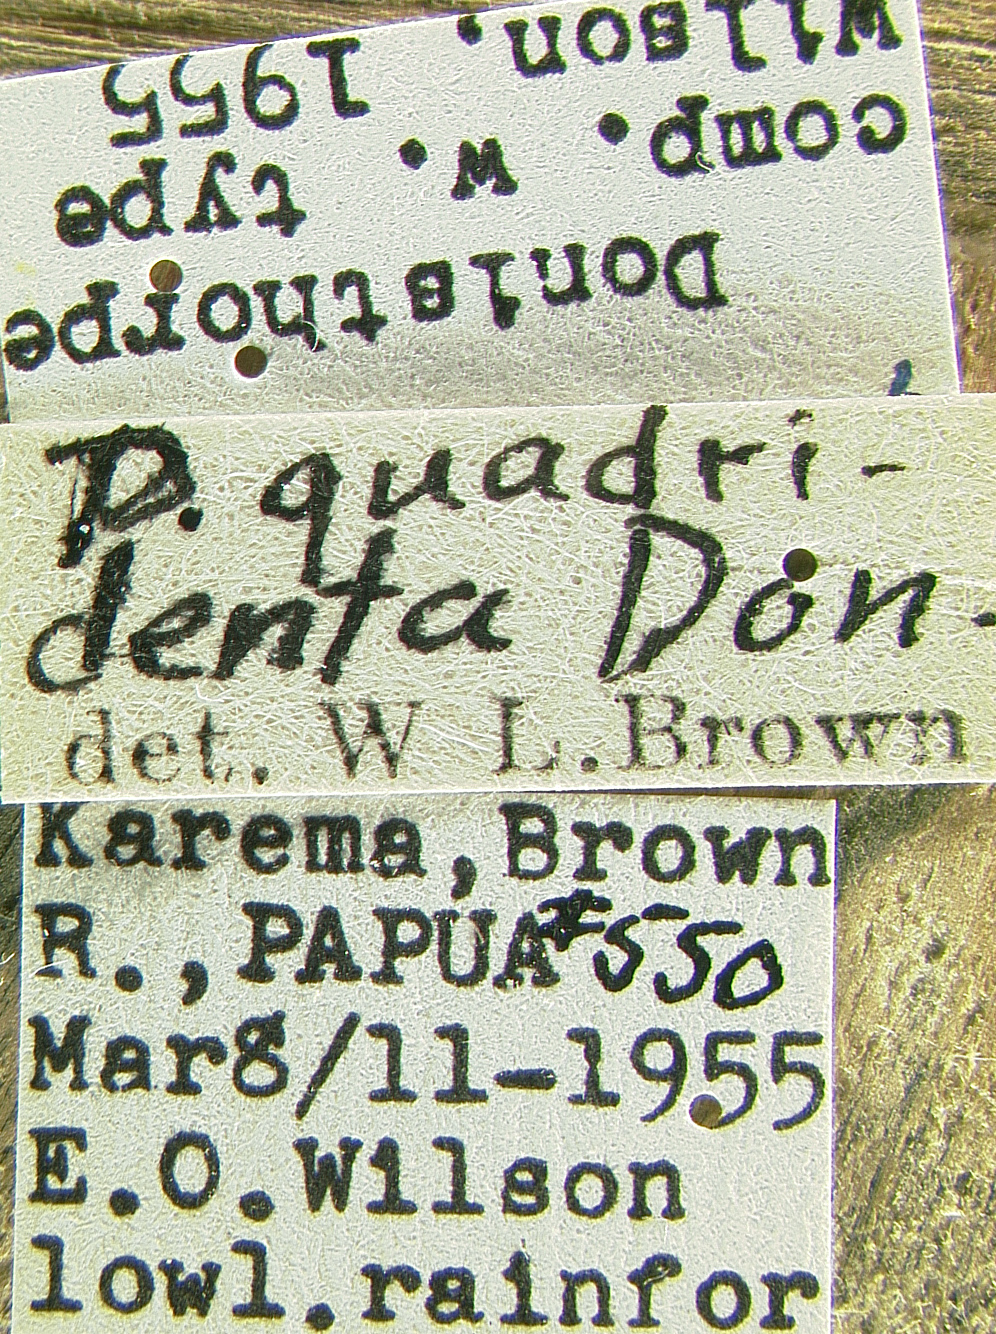 Donisthorpe
comp. w. type
Wilson. 1955
P. quadri-
denta Don-
det. W L. Brown
Karema, Brown
R., PAPUA #550
Mar8/11-1955
E.O.Wilson
lowl.rainfor